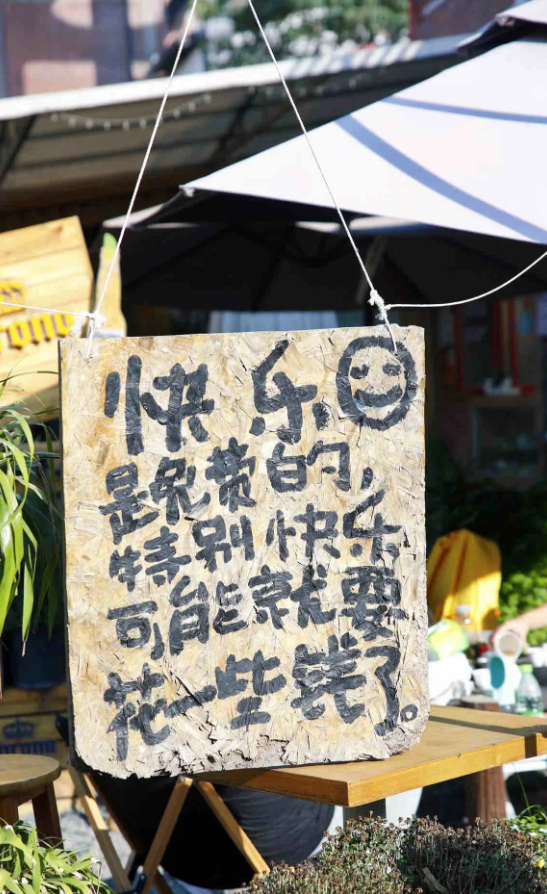 快乐
是免费的，
特别快乐
可能就要
花一些钱了。